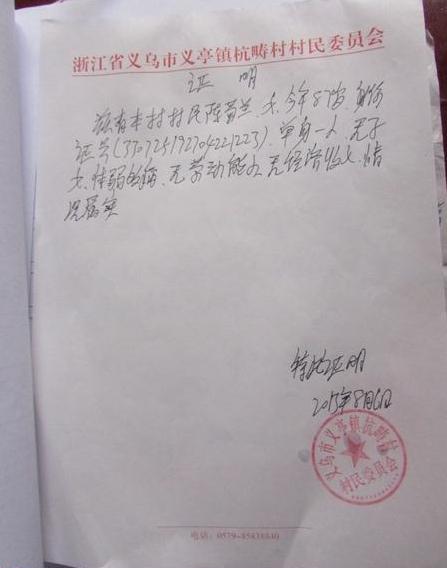 浙江省义乌市义亭镇杭畴村村民委员会
证 明
兹有本村村民陈菊兰、女、今年87岁、身份
证号(330725192704221223)、单身一人、无子
女、体弱多病、无劳动能力、无经济收入、情
况属实
特此证明
2015年8月6日
义乌市义亭镇杭畴村
村民委员会
电话:0579-85438840